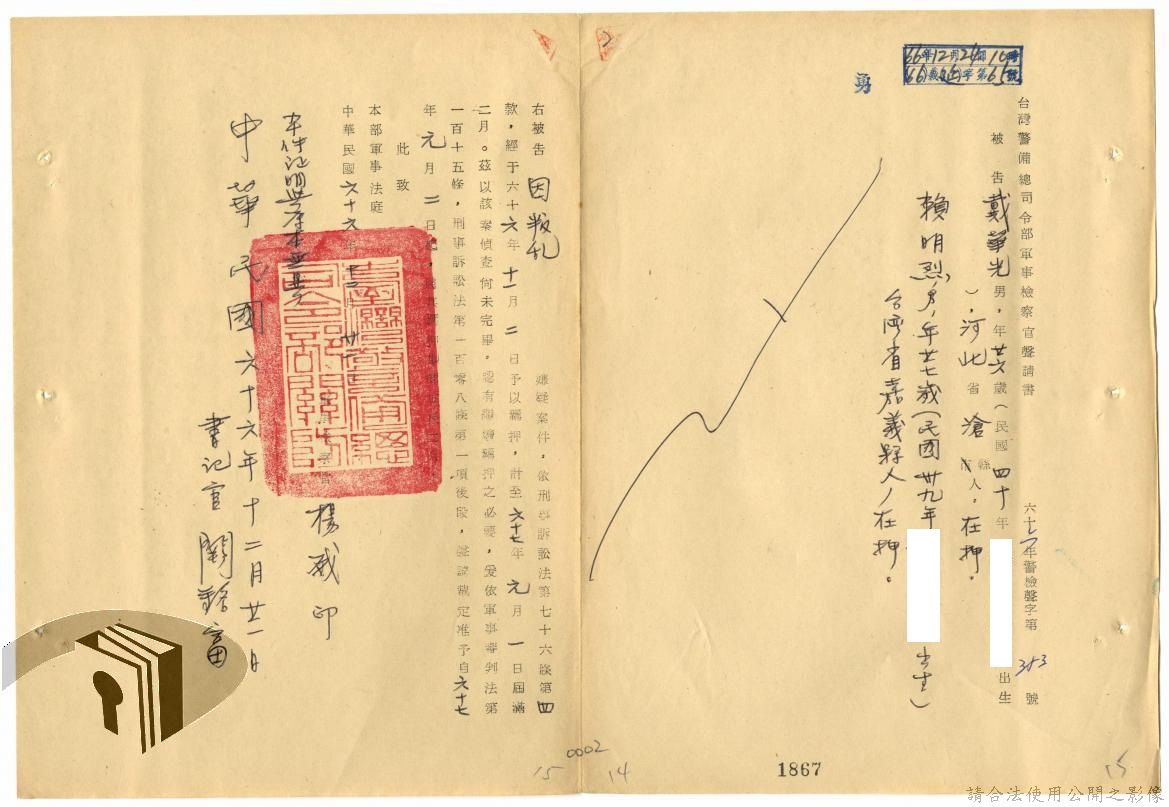 66年12月24日10時
(66)裁字第65號
勇
台灣警備總司令部軍事檢察官聲請書 六十六年警檢聲字第353號
被告戴華光男,年廿六歲(民國四十年 出生
),河北省滄縣人,在押。
賴明烈,男,年廿七歲(民國卅九年 出生)
台灣省嘉義縣人,在押。
右被告因叛乱嫌疑案件,依刑事訴訟法第七十六條第四
款,經于六十六年十一月二日予以羈押,計至六十七年元月一日屆滿
二月。茲以該案偵查尚未完畢,認有繼續羈押之必要,爰依軍事審判法第
一百十五條,刑事訴訟法第一百零八條第一項後段,聲請裁定准予自六十七
年元月二日起,
此致
本部軍事法庭
中華民國六十六年十二月廿一日
楊威印
本件證明與原本無異
中華民國六十六年十二月廿一日
書記官
2
0002
15
14
1867
15
請合法使用公開之影像